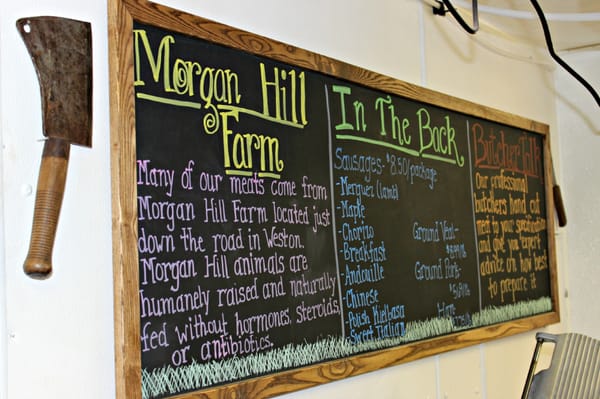 Morgan Hill
Farm
Many of our meats come from
Morgan Hill Farm located just
down the road in Weston.
Morgan Hill animals are
humanely raised and naturally
fed without hormones, steroids,
or antibiotics.
In The Back
Sausages- $8.50/package
-Merguez (lamb)
-Maple
-Chorizo
-Breakfast
-Andouille
-Chinese
-Polish Kielbasa
-Sweet Italian
Ground Veal-
Ground Pork-
Ham
Butcher Talk
Our professional
butchers hand cut
meat to your specification
and give you expert
advice on how best
to prepare it